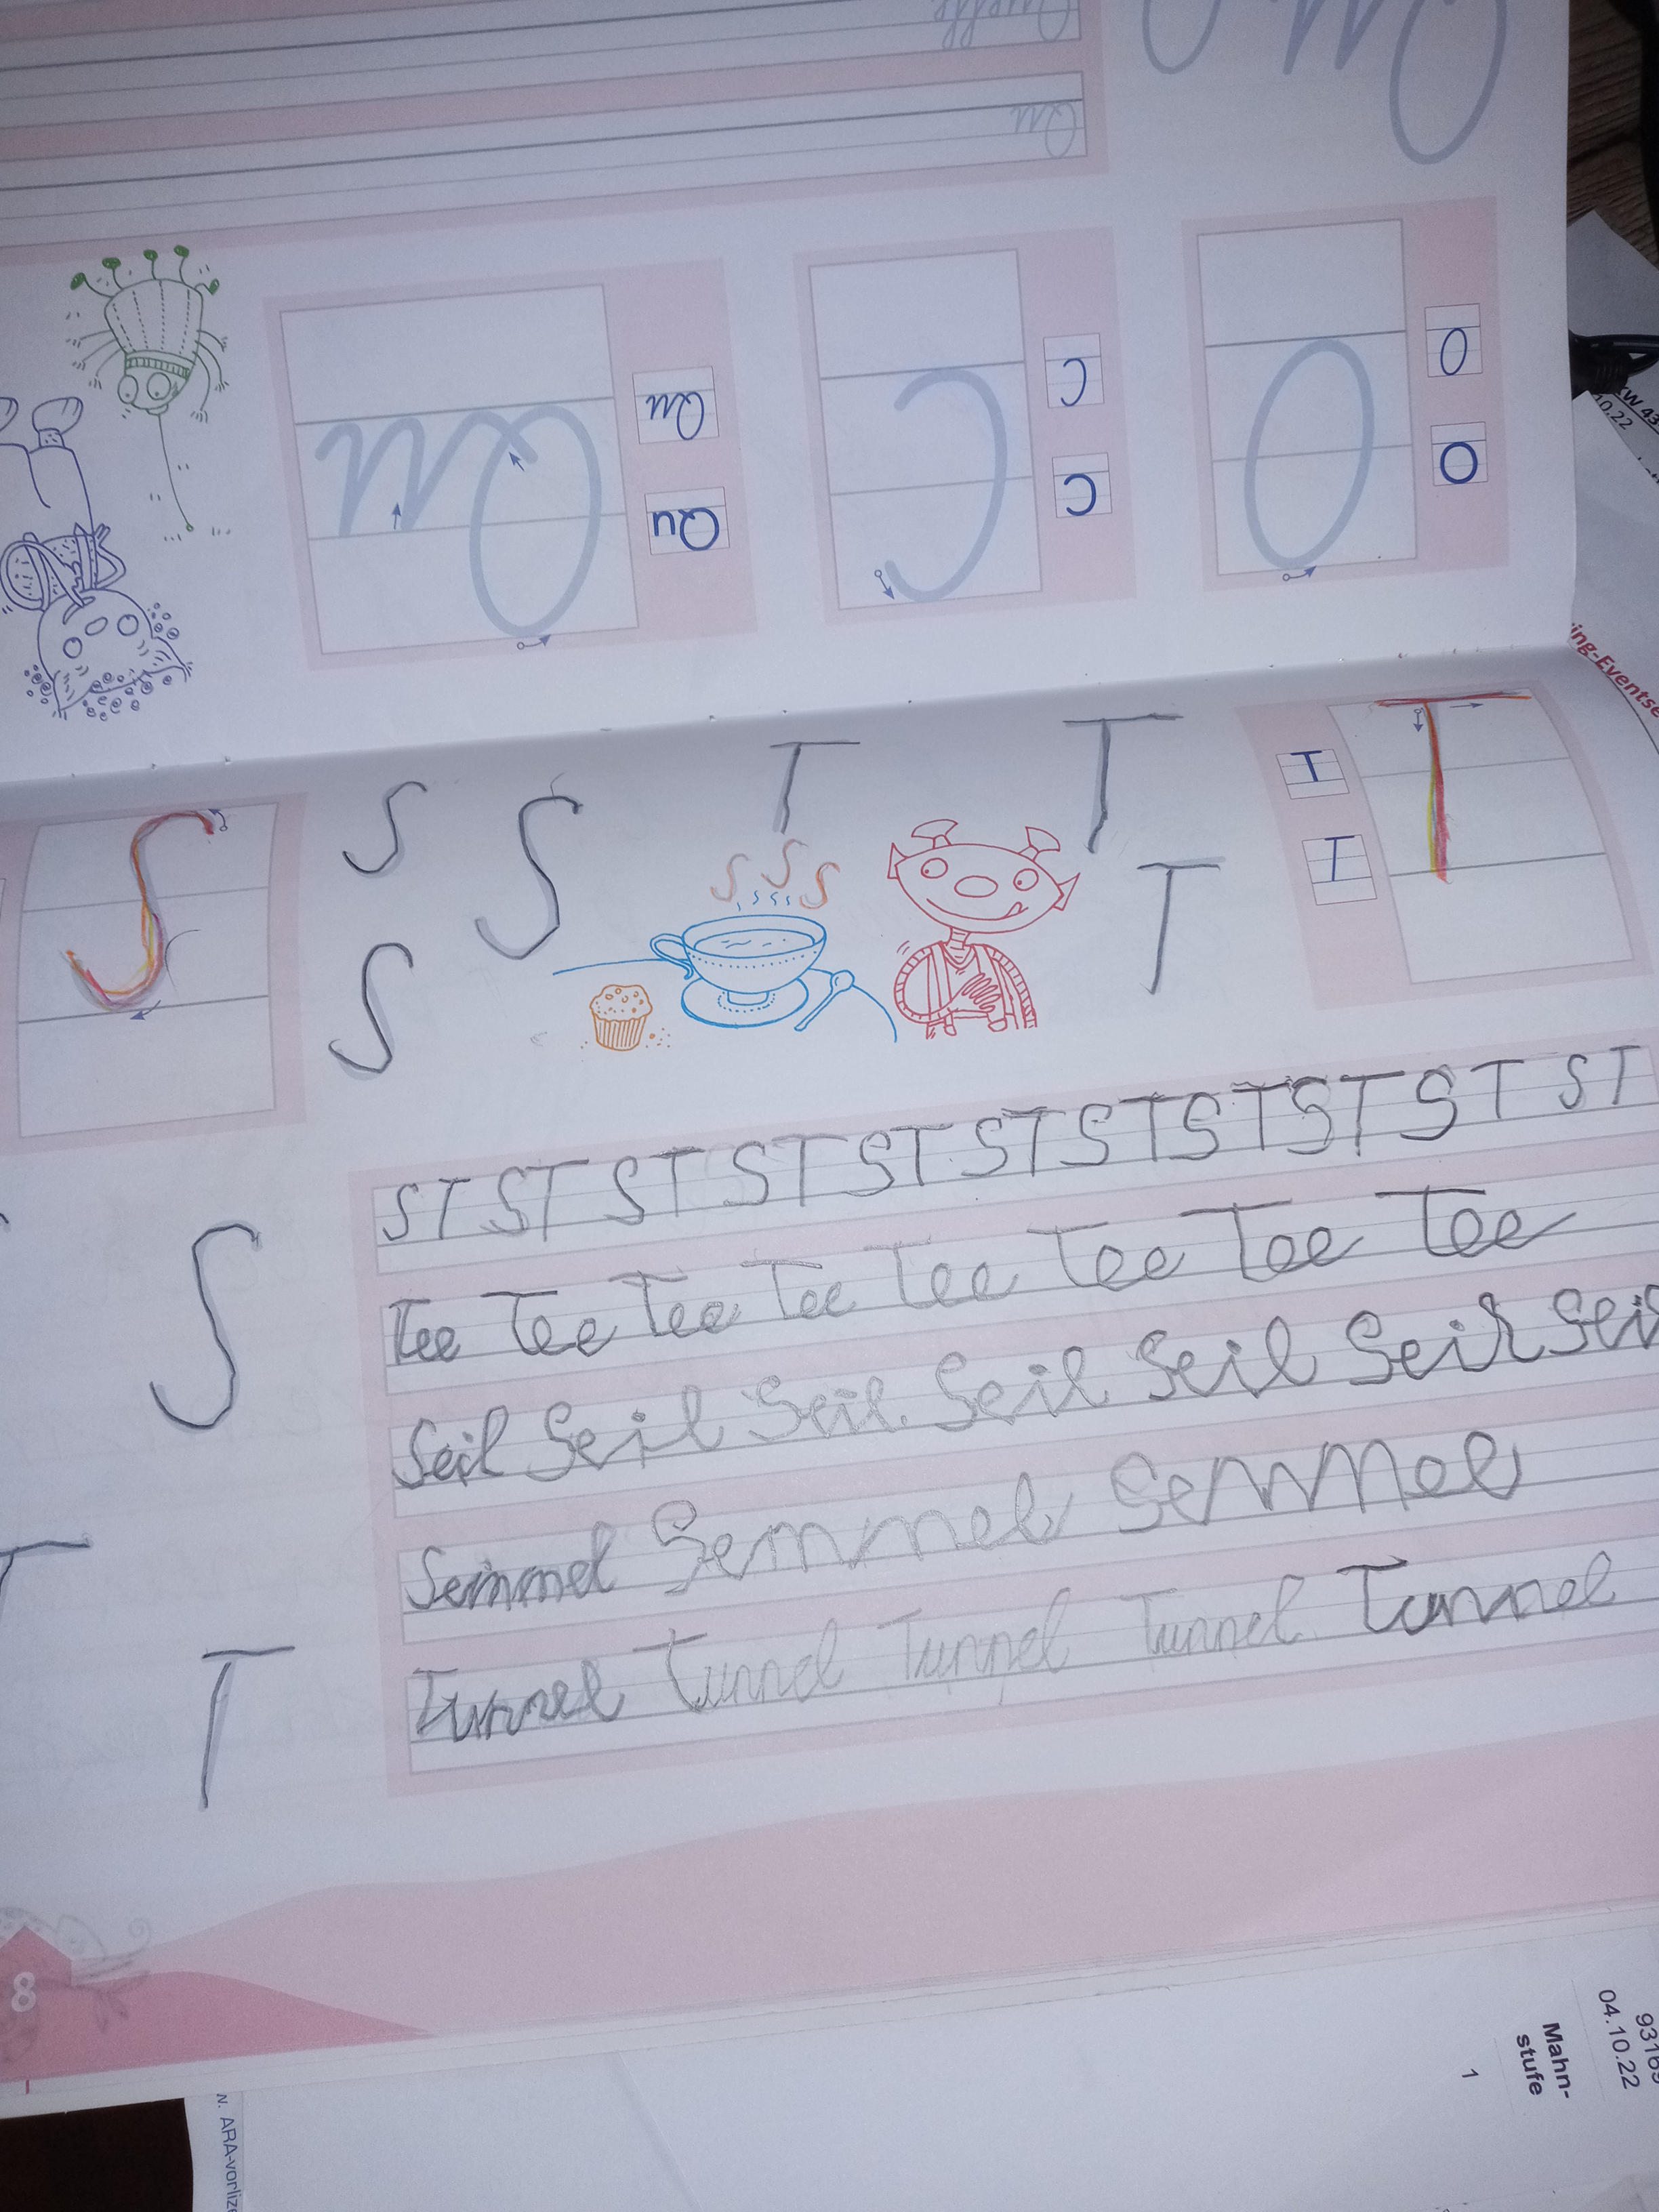 Quelle
Qu
Qu
Qu
Qu
C
C
C
O
O
O
S
S
S
S
T
T
T
S S S
T
T
T
S
T
S T S T S T S T S T S T S T S T S T S T S T
Tee Tee Tee Tee Tee Tee Tee Tee
Seil Seil Seil Seil Seil Seil Seil
Semmel Semmel Semmel
Tunnel Tunnel Tunnel Tunnel Tunnel
T
8
ing-Eventse
KW 43
10.22
04.10.22
Mahn-
stufe
1
w. ARA-vorliz